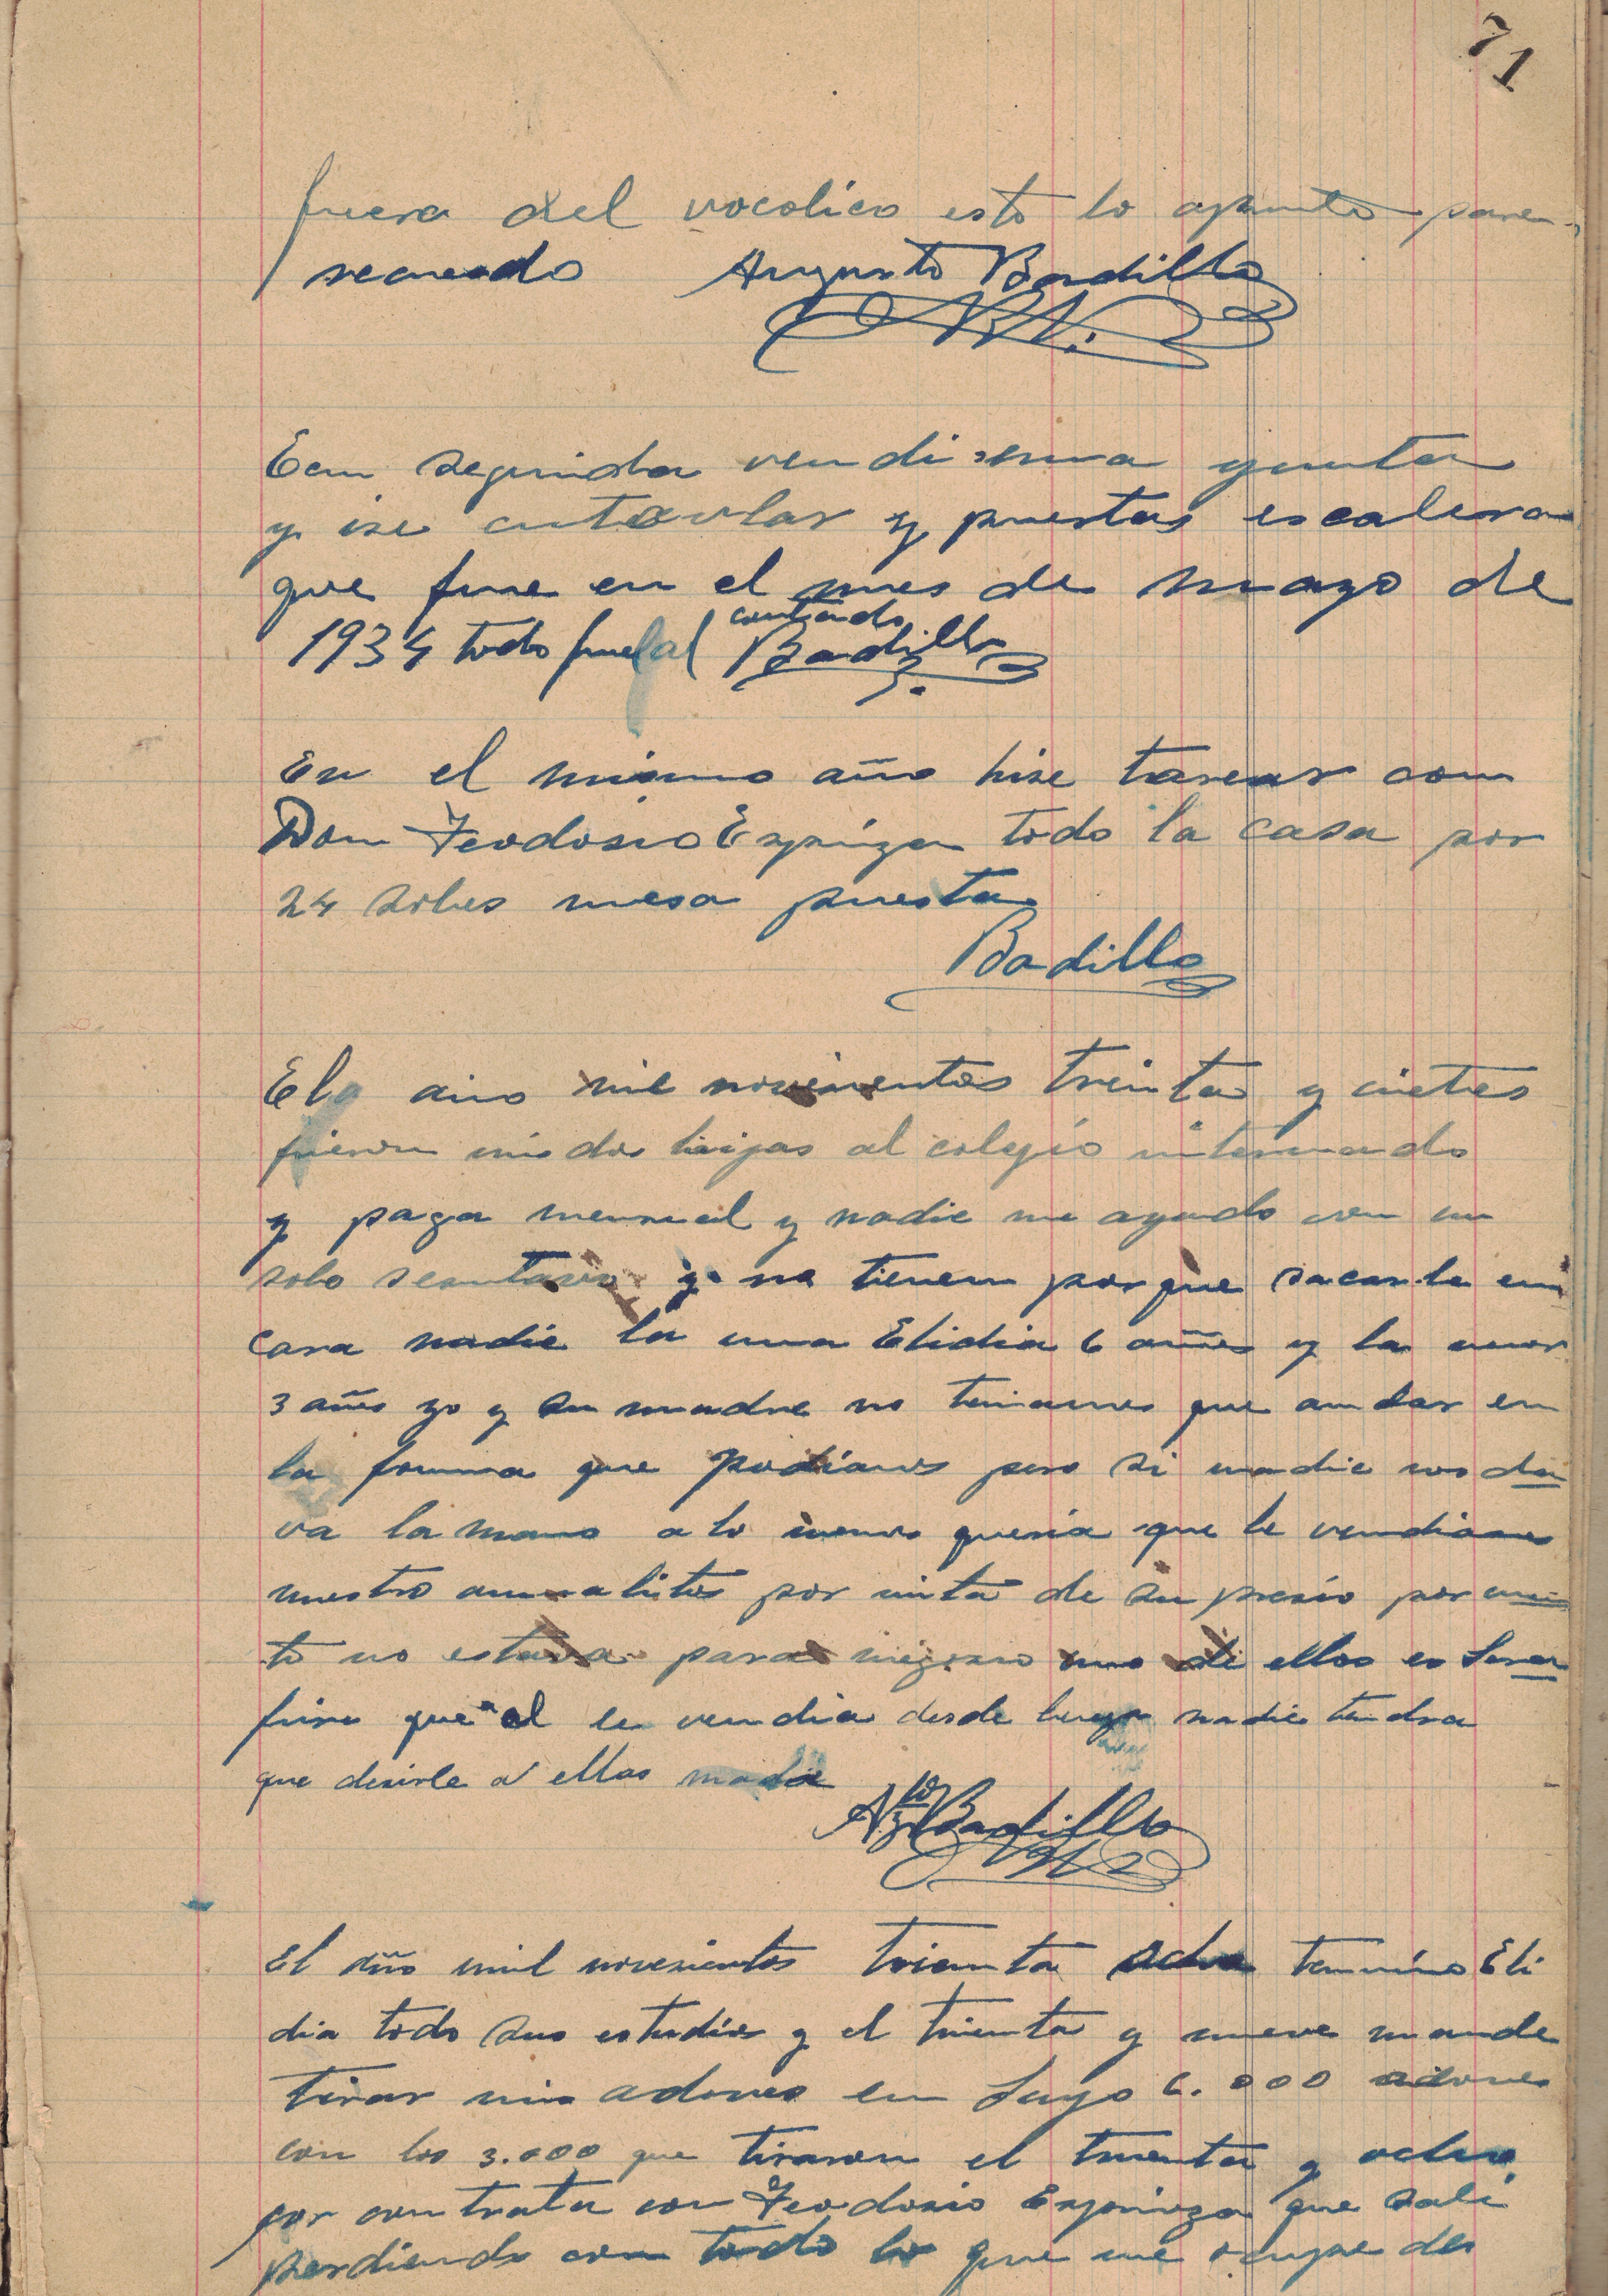 71
fuera del vocolico esto lo apunto para
recuerdo Augusto Badillo
Een seguida vendi una yunta
y ise entavlar y puertas escalera
que fue en el mes de mayo de
1934 todo fue al contado Badillo
En el mismo año hise tarear con
Don Feodosio Espinza todo la casa por
24 soles mesa puesta
Badillo
El año mil novecientos treinta y cietes
fueron mis dos hijas al colegio internado
y paga mensual y nadie me ayudo con un
solo sentavo y no tienen por que sacarle en
cara nadie la una Elidia 6 años y la menor
3 años yo y su madre no teniamos que andar en
la forma que podiamos pero si nadie nos da
va la mano a lo menos queria que le vendiamos
nuestro animalitos por mita de su presio por
to no estava para uno de ellos es Sera
fino que el le vendia desde luego nadie tendra
que desirle a ellas nadie
Agto Badillo
El año mil novesientos trienta ocho termino Eli
dia todo sus estudios y el trienta y nueve mande
tirar mis adoves en Suyo 6.000 adoves
con los 3.000 que tiraron el trienta y ocho
por contrata con Feodosio Espinoza que sali
perdiendo con todo lo que me ocupe des